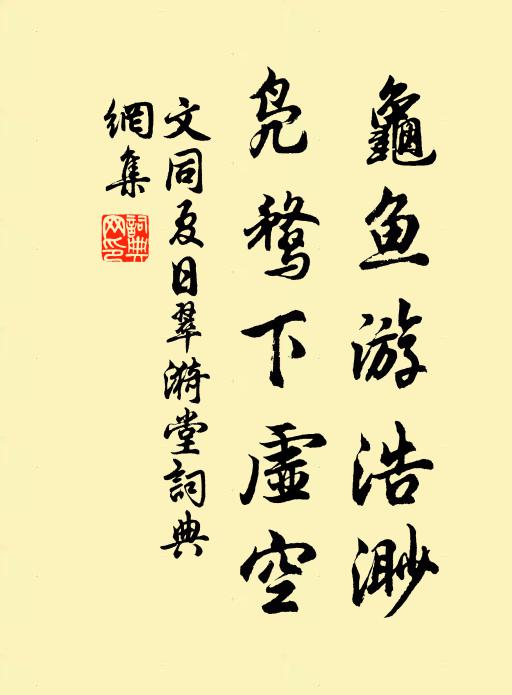 龜鱼游浩渺
凫鶩下虚空
文同夏日翠漪堂詞典
網集
詞典
网印